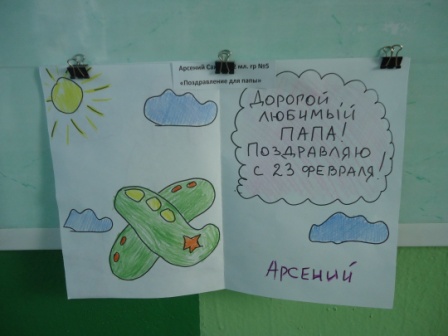 Арсений мл. гр №5
«Поздравление для папы»
ДОРОГОЙ,
ЛЮБИМЫЙ
ПАПА!
ПОЗДРАВЛЯЮ
С 23 ФЕВРАЛЯ!
АРСЕНИЙ